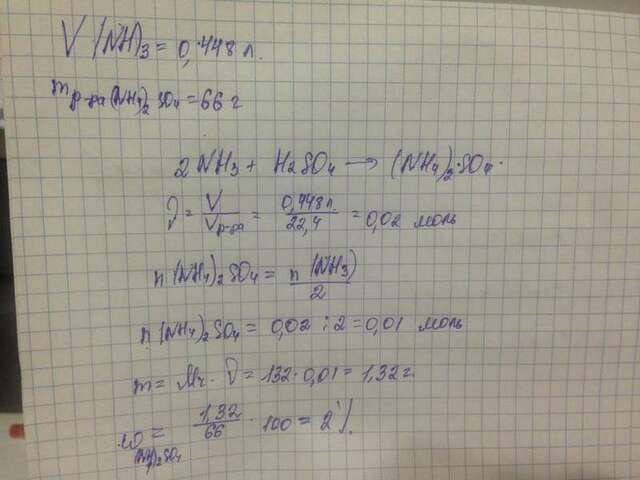 V (NH)3 = 0,448 л.
m р-ра (NH4)2 SO4 = 66 г
2 NH3 + H2SO4 → (NH4)2·SO4.
ν = V / Vр-ра = 0,448л. / 22,4 = 0,02 моль
n (NH4)2 SO4 = n (NH3) / 2
n (NH4)2 SO4 = 0,02 : 2 = 0,01 моль
m = Mr · ν = 132 · 0,01 = 1,32 г.
ω (NH4)2SO4 = 1,32 / 66 · 100 = 2%.